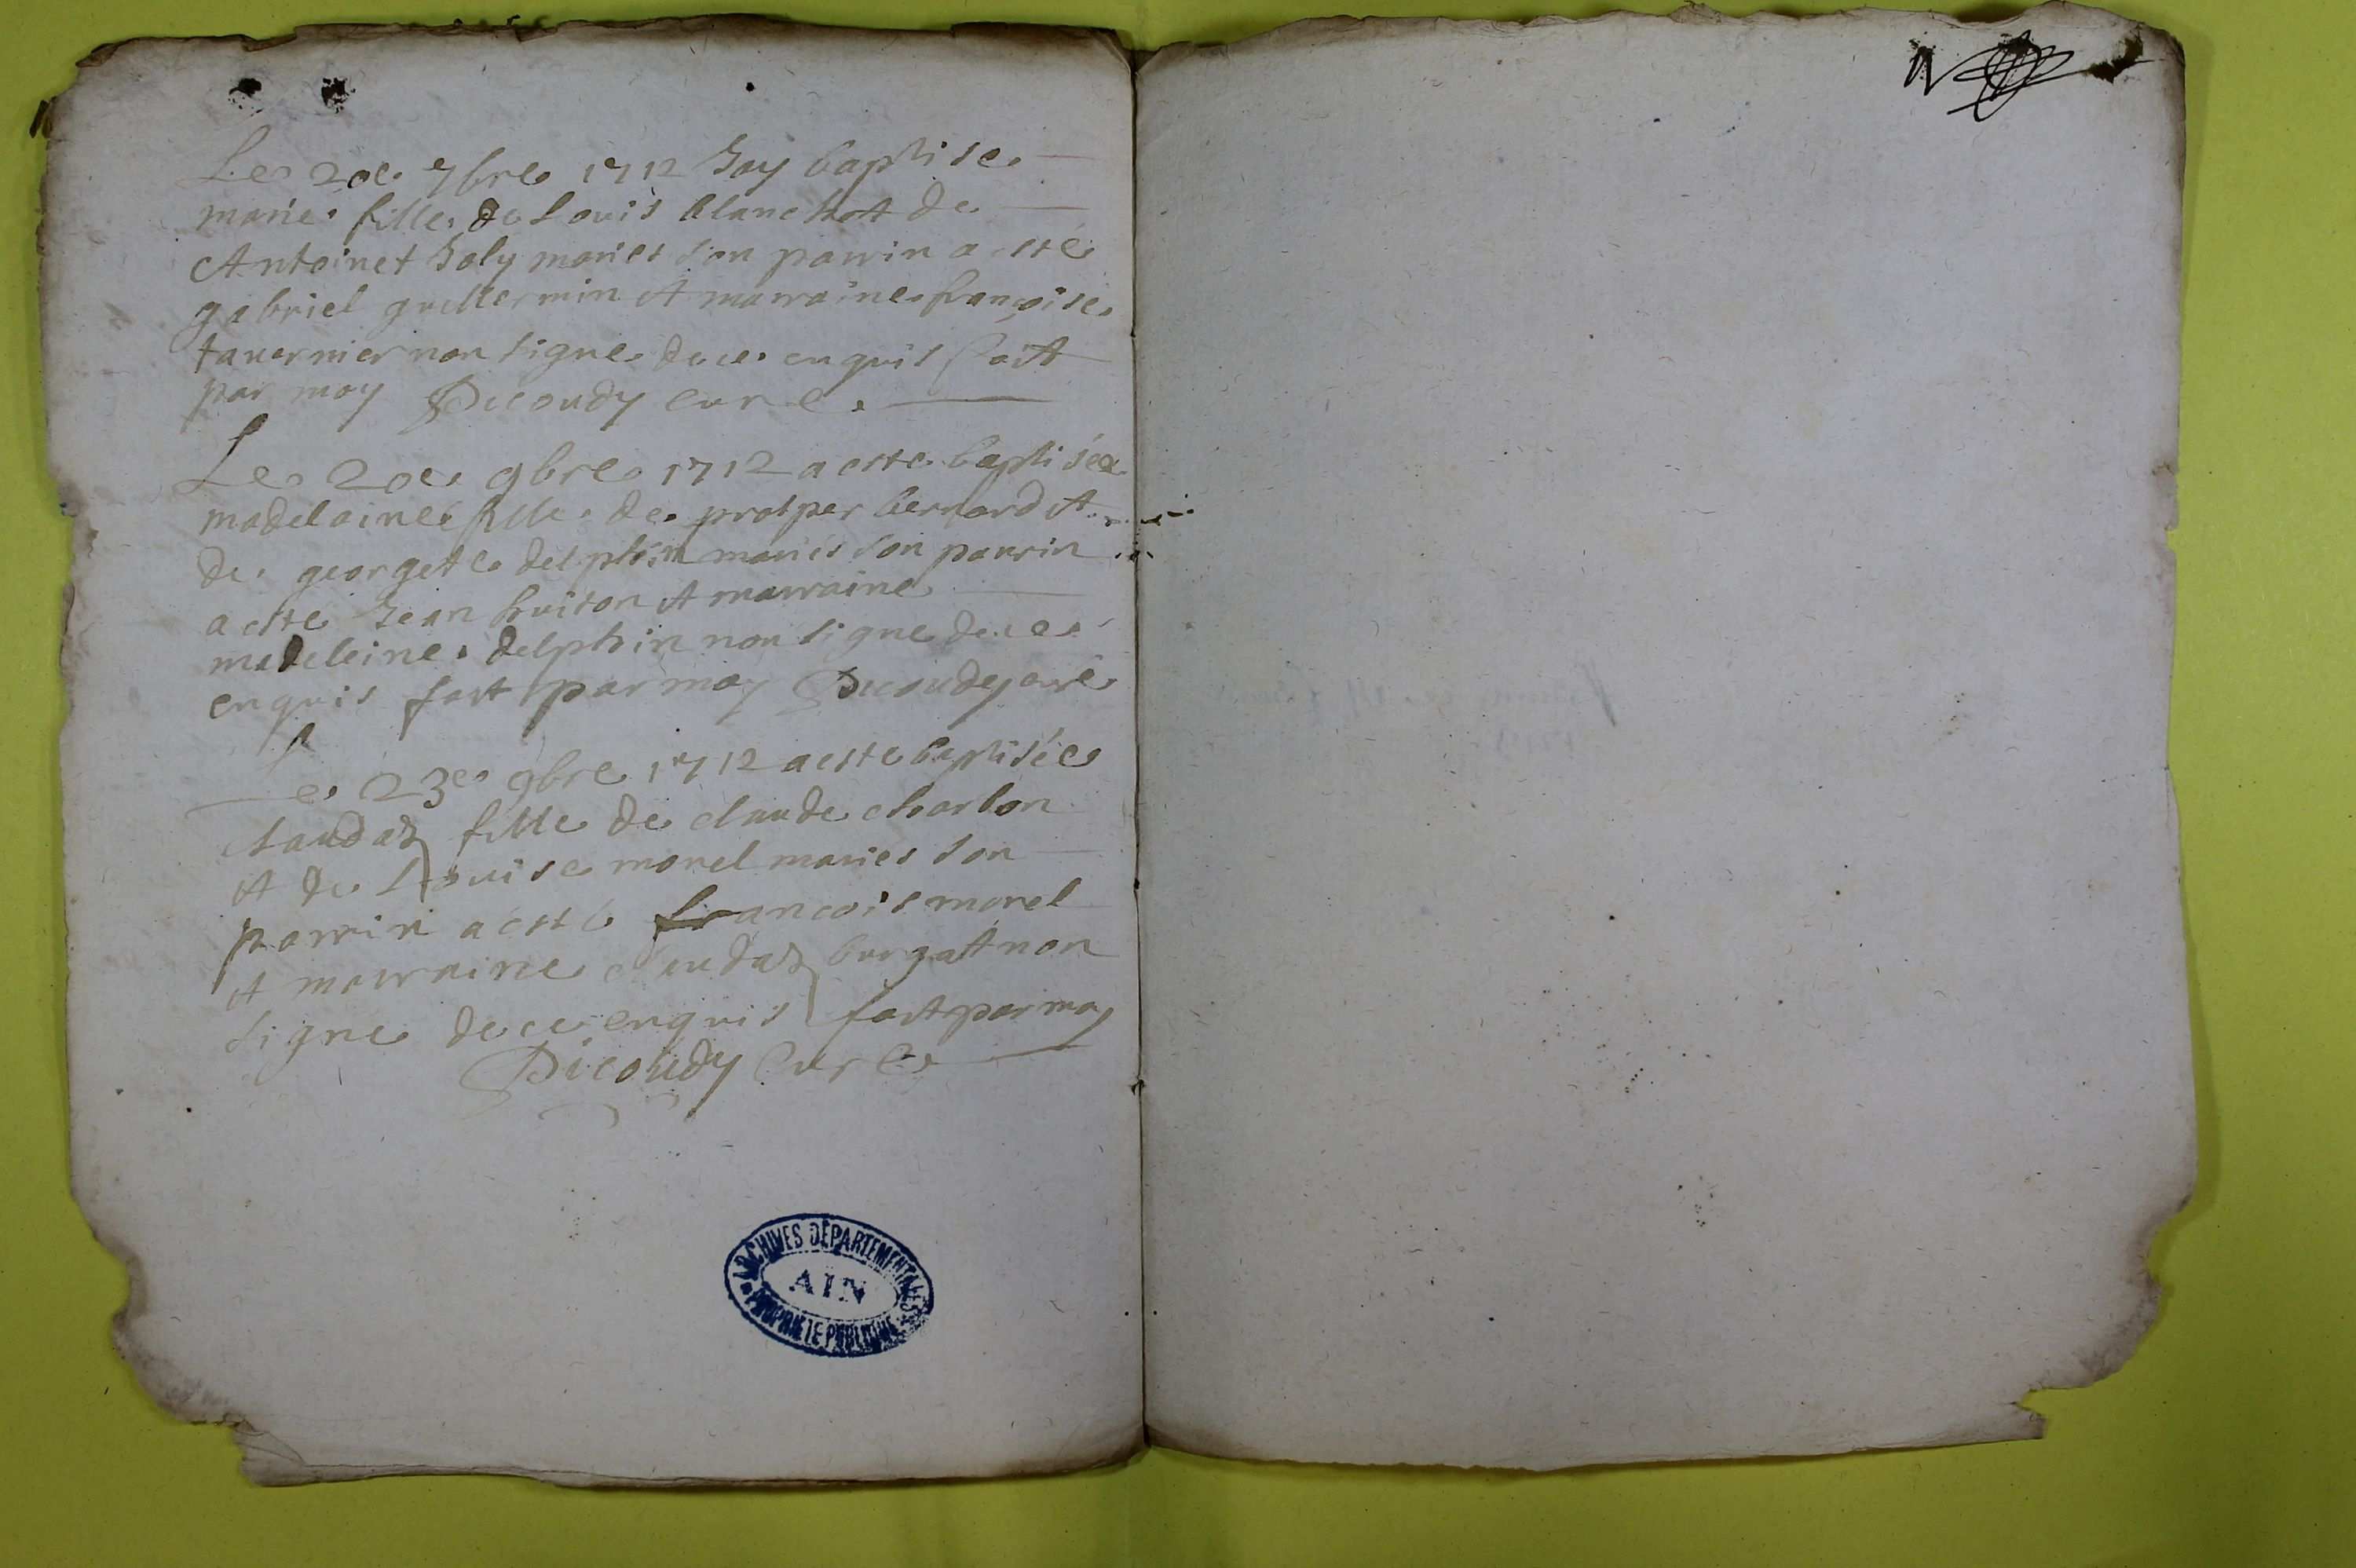 Le 20e 7bre 1712 Jay baptise
marie fille de Louis blanchot de
Antoinet Joly mariés son parrin a esté
gabriel guillermin et marraine françoise
tauernier non signe de ce enquis fait
par moy Dicoudy curé
Le 20e 9bre 1712 a este baptisée
madelaine fille de prosper bernard et
de georgette delphin mariés son parrin
a esté Jean huiton et marraine
madeleine delphin non signe de ce
enquis fait par moy Dicoudy curé
Le 23e 9bre 1712 a este baptisée
claudaz fille de claude charbon
et de Louise morel mariés son
parrin a esté francois morel
et marraine claudaz burgat non
signe de ce enquis fait par moy
Dicoudy Curé
ARCHIVES DÉPARTEMENTALES
AIN
PROPRIÉTÉ PUBLIQUE